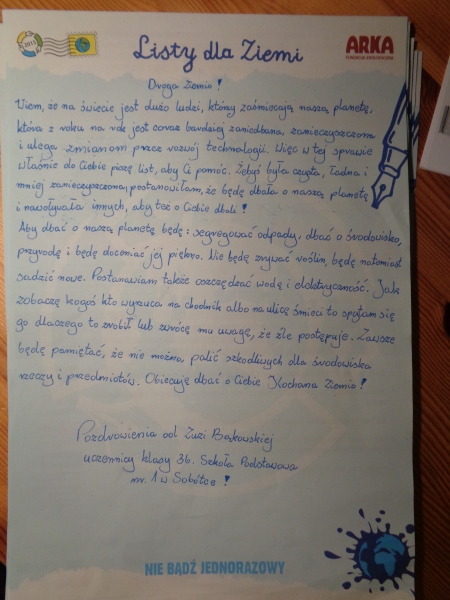 2015
Listy dla Ziemi
ARKA
FUNDACJA EKOLOGICZNA
Droga Ziemio!
Wiem, że na świecie jest dużo ludzi, którzy zaśmiecają naszą planetę,
która z roku na rok jest coraz bardziej zaniedbana, zanieczyszczona
i ulega zmianom przez rozwój technologii. Więc w tej sprawie
właśnie do Ciebie piszę list, aby Ci pomóc. Żebyś była czysta, ładna i
mniej zanieczyszczona, postanowiłam, że będę dbała o naszą planetę
i nawoływała innych, aby też o Ciebie dbali!
Aby dbać o naszą planetę będę: segregować odpady, dbać o środowisko,
przyrodę i będę doceniać jej piękno. Nie będę zrywać roślin, będę natomiast
sadzić nowe. Postanawiam także oszczędzać wodę i elektryczność. Jak
zobaczę kogoś kto wyrzuca na chodnik albo na ulicę śmieci to spytam się
go dlaczego to zrobił lub zwrócę mu uwagę, że źle postępuje. Zawsze
będę pamiętać, że nie można, palić szkodliwych dla środowiska
rzeczy i przedmiotów. Obiecuję dbać o Ciebie Kochana Ziemio!
Pozdrowienia od Zuzi Bąkowskiej
uczennicy klasy 3b. Szkoła Podstawowa
nr. 1 w Sobótce!
NIE BĄDŹ JEDNORAZOWY